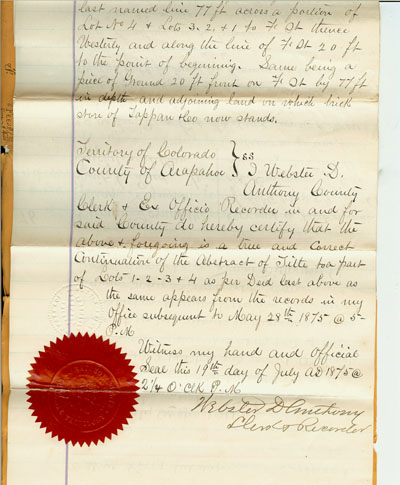 last named line 77 ft across a portion of
Lot No 4 & Lots 3. 2. & 1 to F. St thence
Westerly and along the line of F. St 20 ft
to the point of beginning. Same being a
piece of Ground 20 ft front on F. St by 77 ft
in depth and adjoining land on which brick
store of Tappan & Co now stands.
Territory of Colorado } ss
County of Arapahoe } I Webster D.
Anthony County
Clerk & Ex Officio Recorder in and for
said County do hereby certify that the
above & foregoing is a true and Correct
Continuation of the Abstract of Title to a part
of Lots 1-2-3 & 4 as per Deed last above as
the same appears from the records in my
Office subsequent to May 28th 1875 @ 5-
P.M
Witness my hand and official
Seal this 19th day of July AD 1875 @
2 1/4 O'Clk P.M
Webster D Anthony
Clerk & Recorder